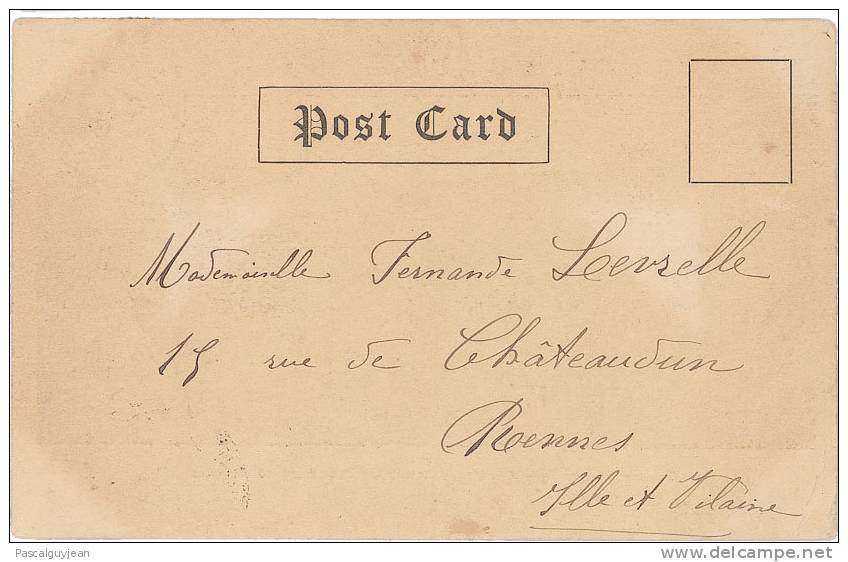 Post Card
Mademoiselle Fernande Levrelle
15 rue de Châteaudun
Rennes
Ille et Vilaine
Pascalguyjean
www.delcampe.net